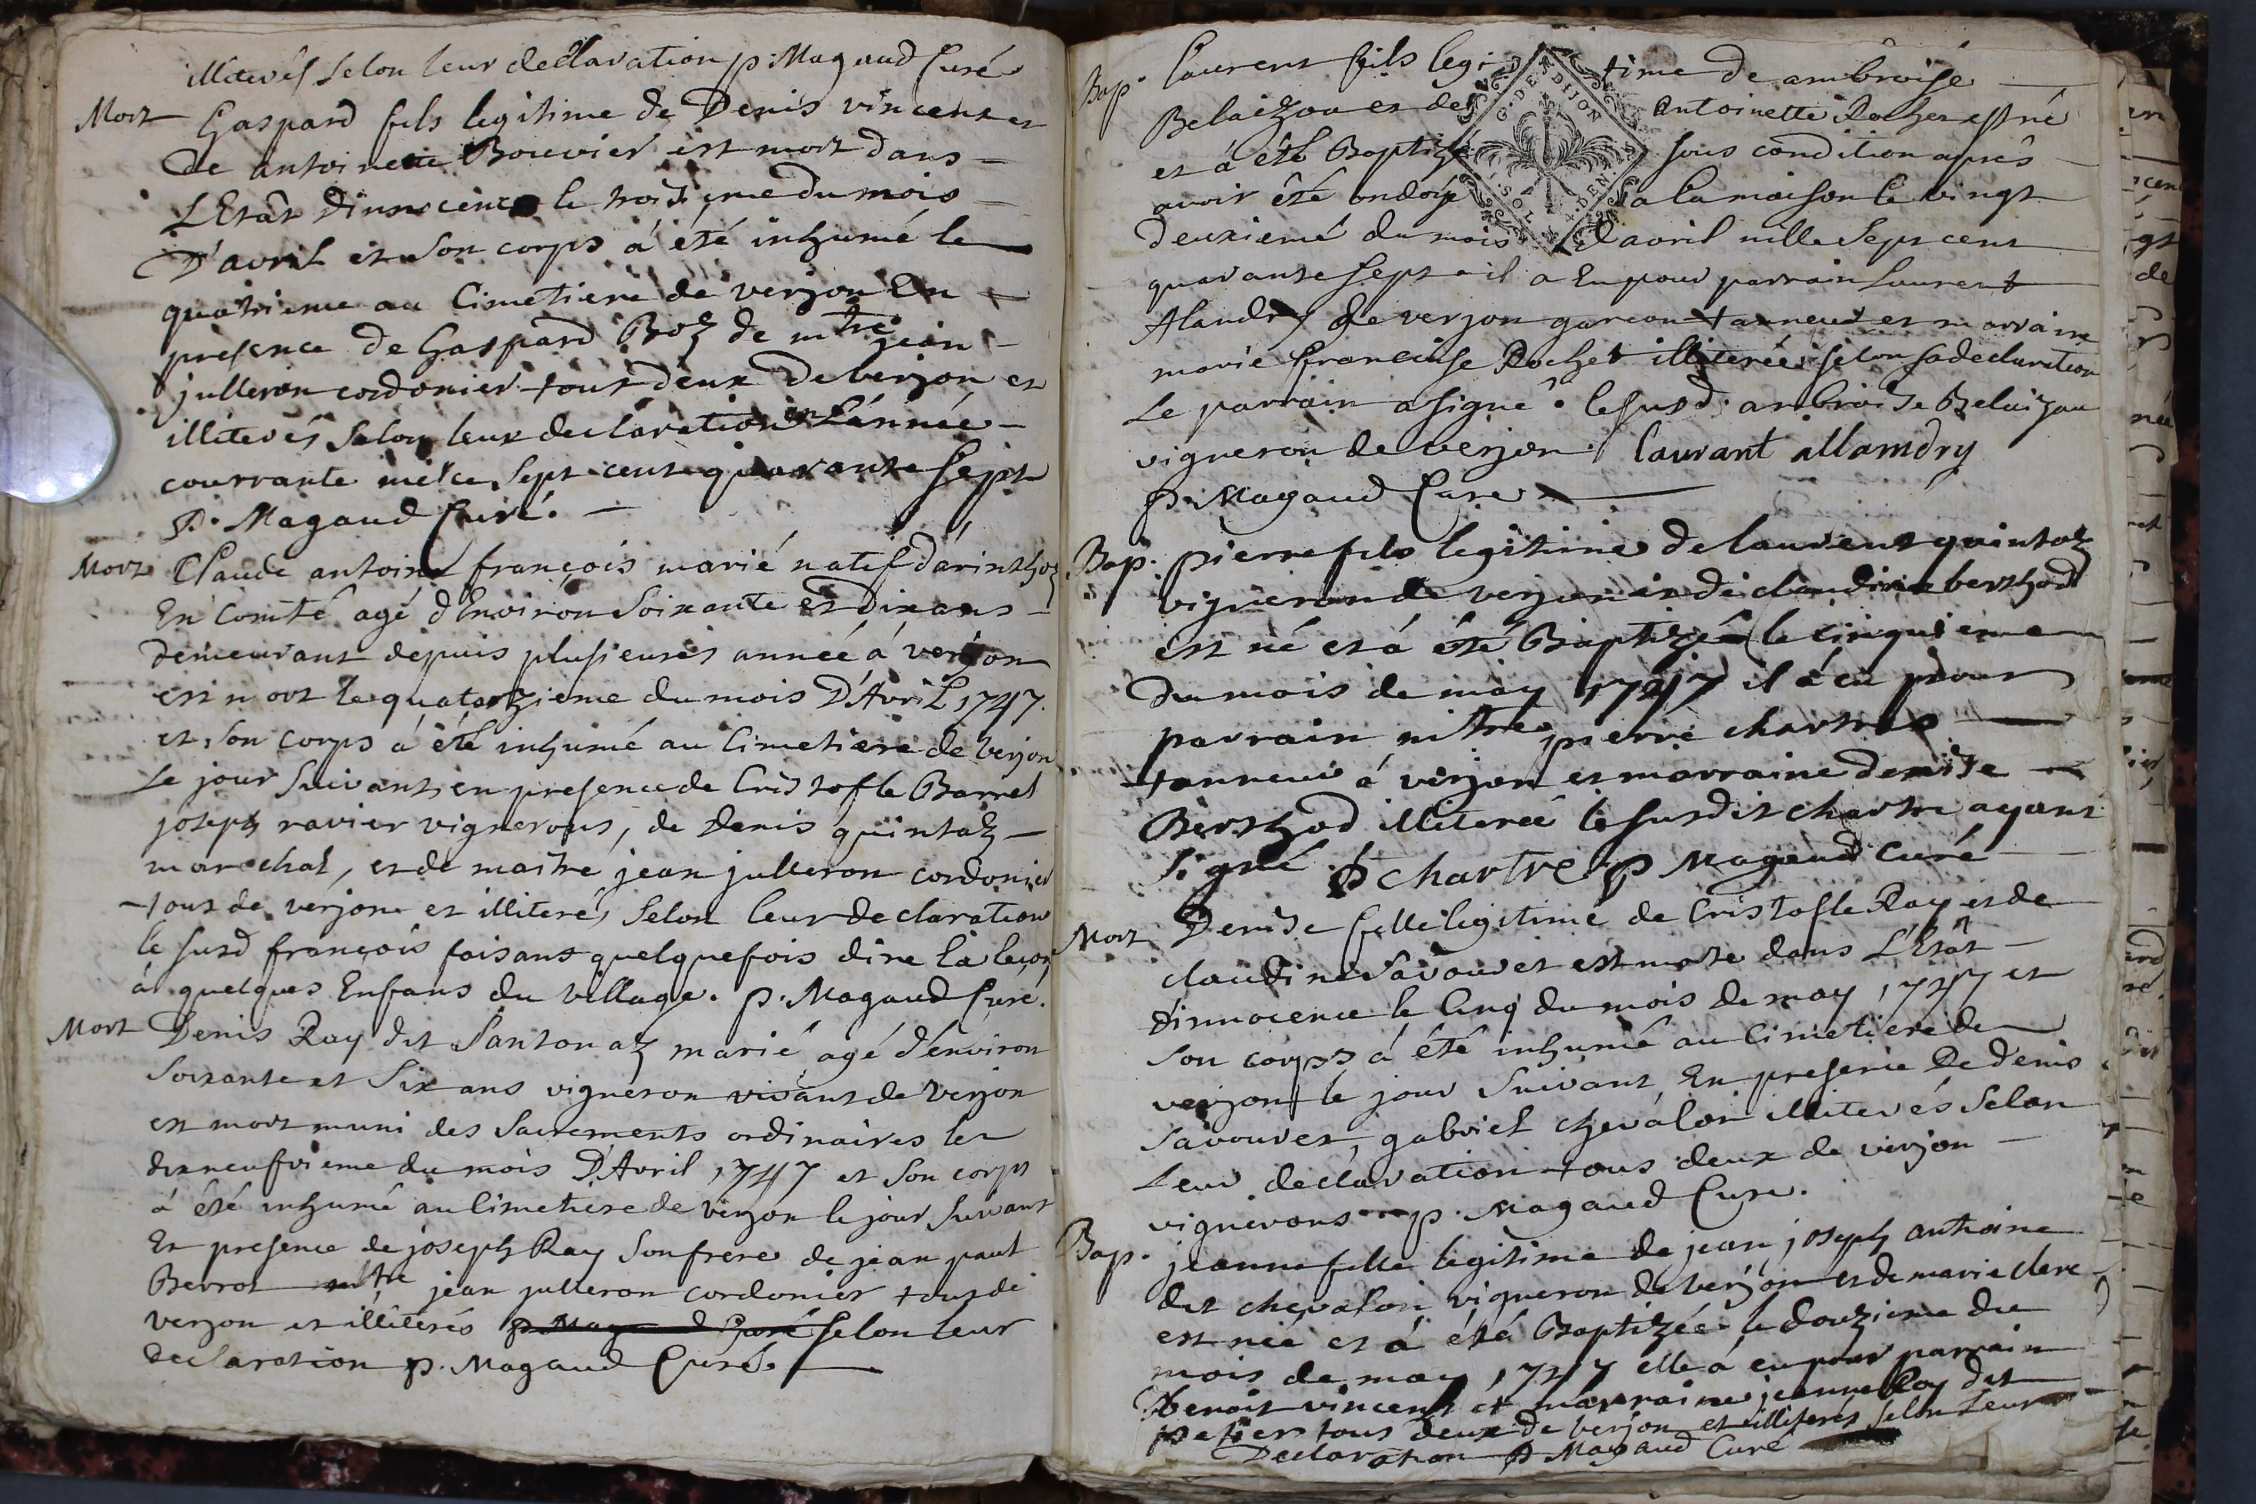 illiterés selon leur declaration p. Magaud Curé
Mort Gaspard fils legitime de Denis vincent et
de antoinette Bouvier est mort dans
L'Etât d'innocence le troisieme du mois
D'avril et son corps á été inhumé le
quatrieme au Cimetiere de verjon En
presence de Gaspard Boz de mtre jean
julleron cordonier tout deux de verjon et
illiterés selon leur declaration en L'année
courrante mil sept cent quarante sept
P. Magaud Curé.
Mort Claude antoine françois marié natif d'arinthoz
En Comté agé d'Environ soixante et dix ans
demeurant depuis plusieurs année á verjon
est mort le quatorzieme du mois D'Avril 1747.
et son corps á été inhumé au Cimetiere de verjon
Le jour suivant en presence de Cristofle Barret
joseph ravier vignerons, de Denis quintaz
marechal, et de maitre jean julleron cordonier
tous de verjon et illiterés selon leur declaration
le susd françois faisant quelquefois dire la leçon
á quelques Enfans du village. p. Magaud Curé.
Mort Denis Ray dit Santonaz marié agé d'environ
soixante et six ans vigneron vivant de verjon
est mort muni des Sacrements ordinaires le
dixneufvieme du mois D'Avril 1747 et son corps
á été inhumé au Cimetiere de verjon le jour suivant
En presence de joseph Ray son frere de jean paul
Berrot mtre jean julleron cordonier tous de
verjon et illiterés p. Magaud Curé selon leur
declaration p. Magaud Curé.
Bap. Laurent fils legitime de ambroise
Belaizon et de Antoinette Rochet est né
et á été Baptizé sous condition aprés
avoir été ondoyé a la maison le vingt
deuxiemé du mois d'avril mille Sept cent
quarante sept il a Eu pour parrain Laurent
Alandry de verjon garcon tanneur et marraine
marie francoise Rochet illiterée selon sa declaration
Le parrain a signé. le susd. ambroise Belaizon
vigneron de verjon. Laurant allamdry
p. Magaud Curé
G. DE. DIJON
SOL. 4. DEN.
Bap. pierre fils legitime de laurent quintaz
vigneron de verjon et de claudine berthod
est né et á été Baptizé le cinquieme
du mois de may 1747 il á eu pour
parrain mtre pierre chartre
tanneur á verjon et marraine denise
Berthod illiterée le susdit chartre ayant
signé. P chartre p Magaud Curé
Mort Denise fille legitime de Cristofle Ray et de
claudine Savouret est morte dans L'Etât
d'innocence le Cinq du mois de may 1747 et
son corps á été inhumé au Cimetiere de
verjon le jour suivant En presence de Denis
Savouret, gabriel chevalon illiterés selon
Leur declaration tous deux de verjon
vignerons p. Magaud Curé.
Bap. jeanne fille legitime de jean joseph antoine
dit chevalon vigneron de verjon et de marie clere
est née et á été Baptizée le douzieme du
mois de may 1747 elle á eu pour parrain
Benoit vincent et marraine jeanne Ray dit
petier tous deux de verjon et illiterés selon Leur
Declaration P Magaud Curé